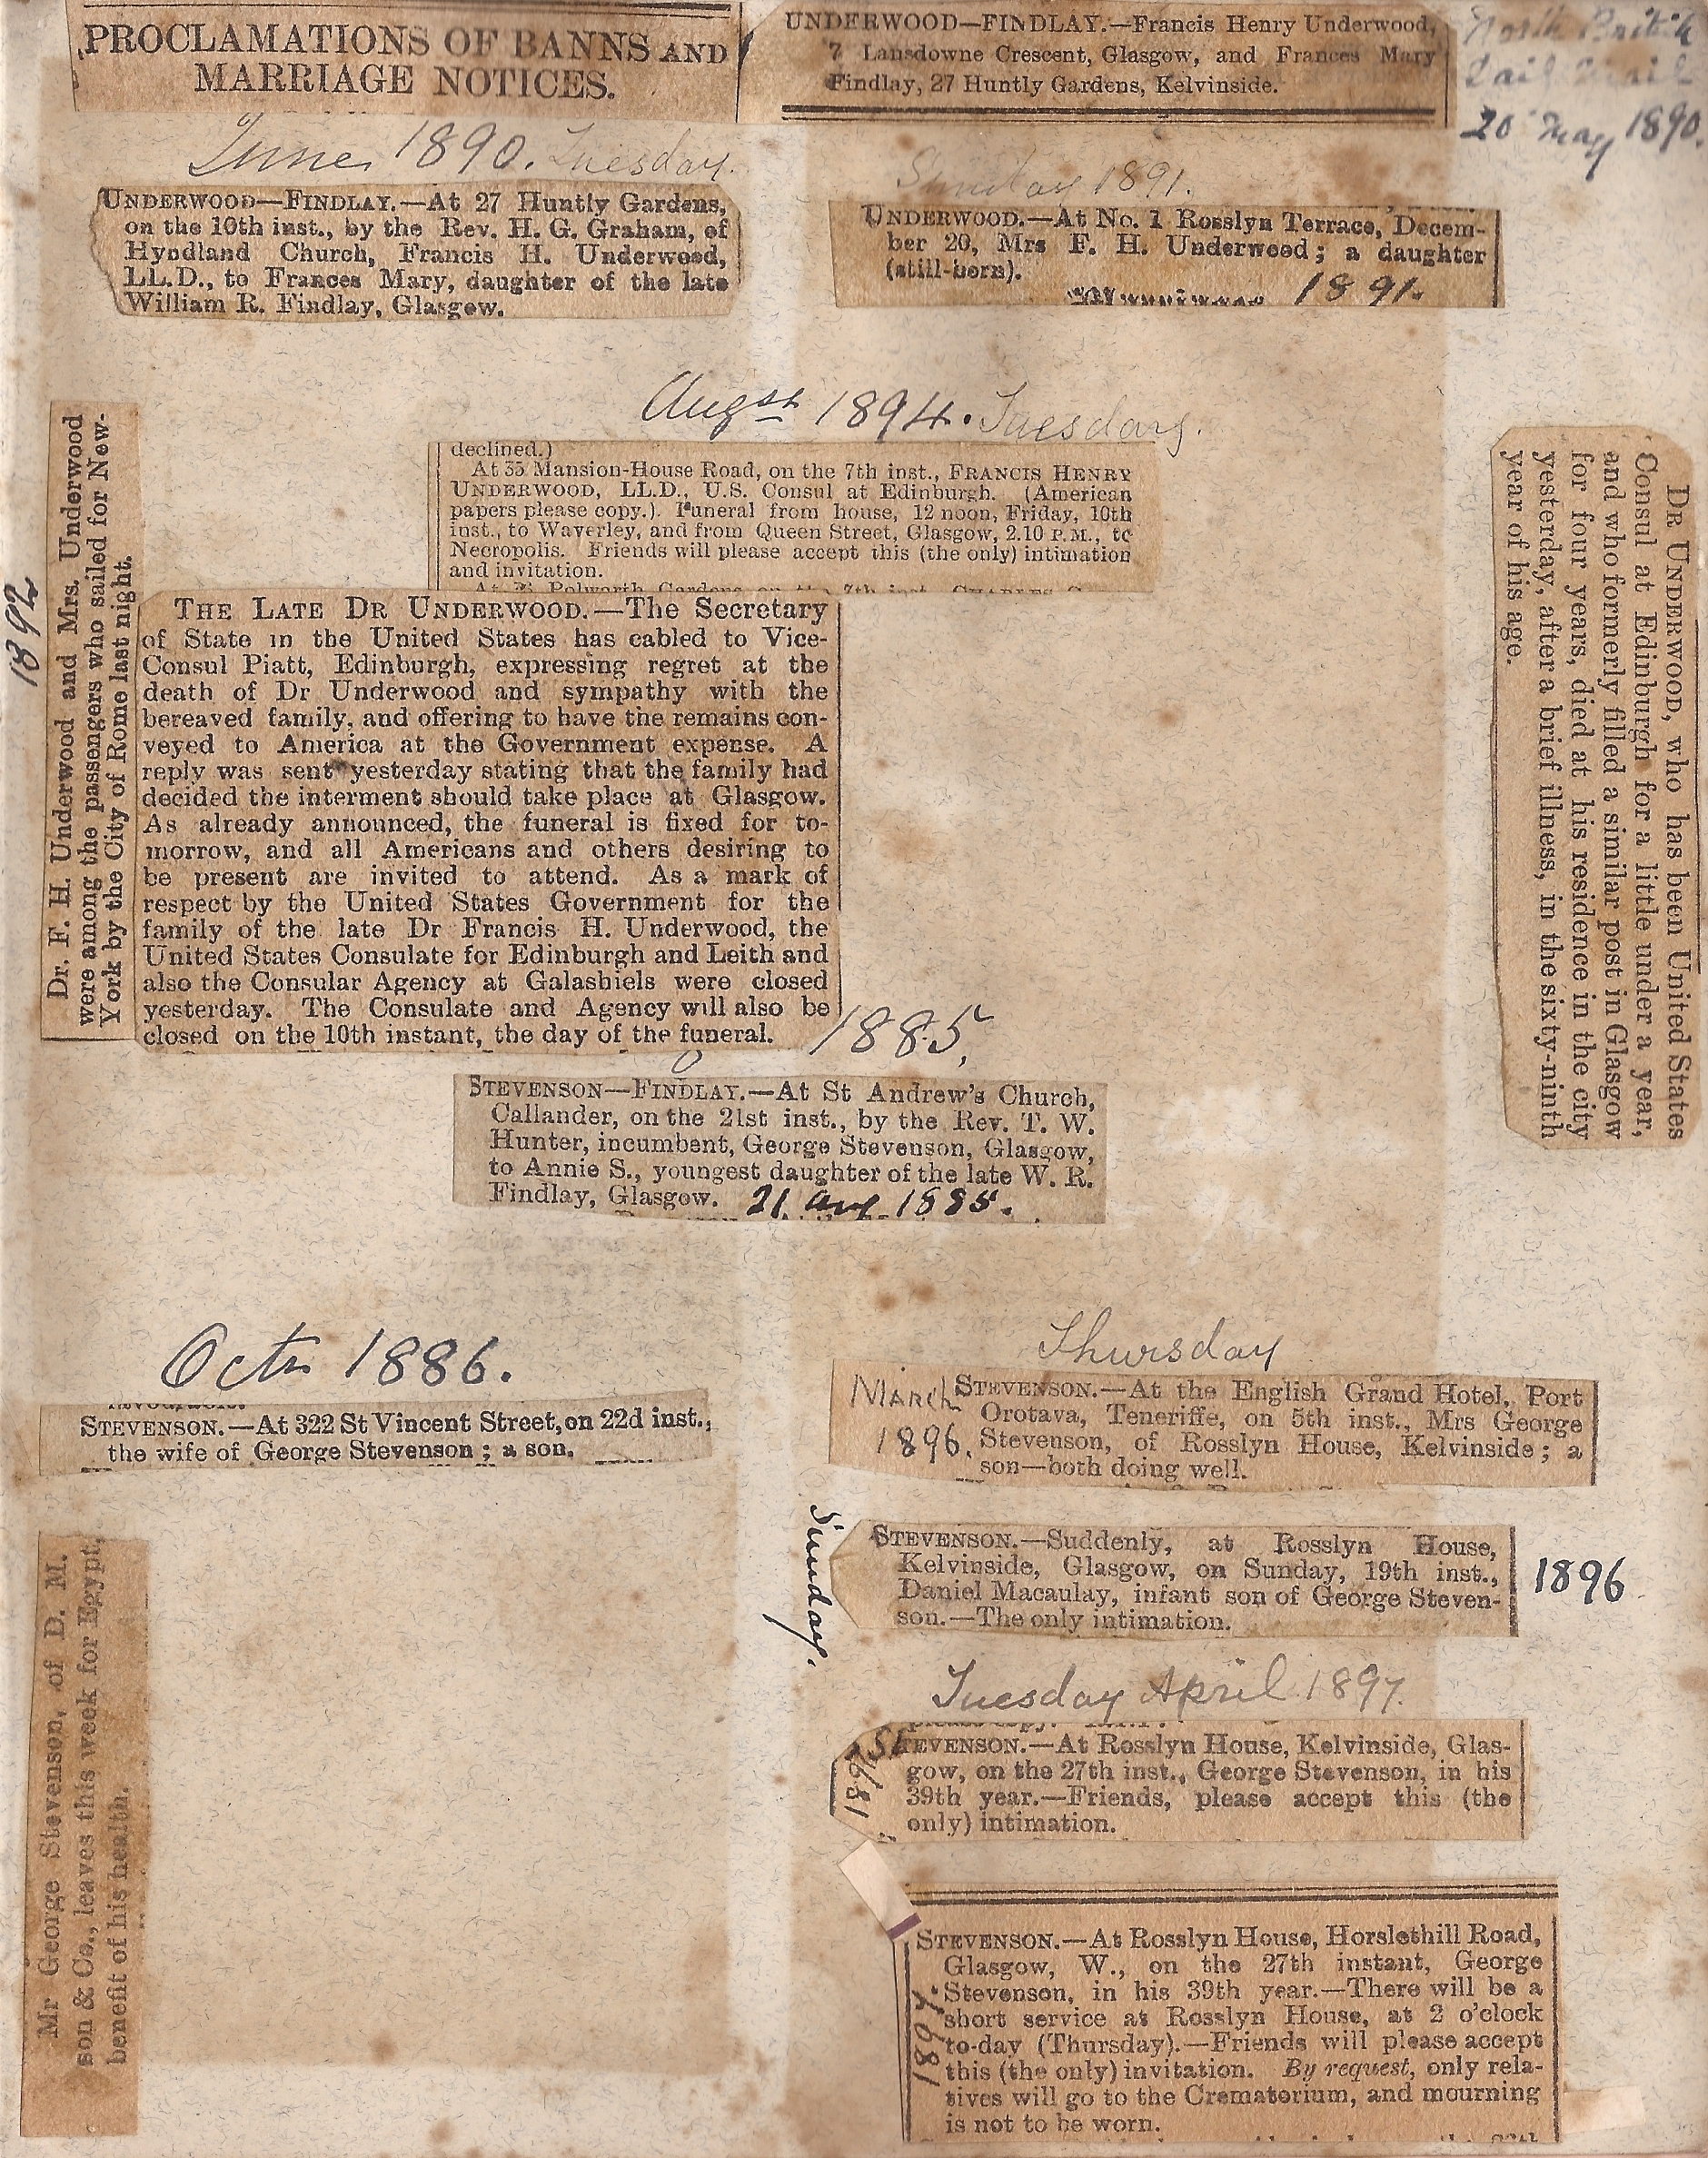 PROCLAMATIONS OF BANNS AND
MARRIAGE NOTICES.
UNDERWOOD—FINDLAY.—Francis Henry Underwood,
7 Lansdowne Crescent, Glasgow, and Frances Mary
Findlay, 27 Huntly Gardens, Kelvinside.
North British
Mail
20 May 1890.
June 1890. Tuesday.
UNDERWOOD—FINDLAY.—At 27 Huntly Gardens,
on the 10th inst., by the Rev. H. G. Graham, of
Hyndland Church, Francis H. Underwood,
LL.D., to Frances Mary, daughter of the late
William R. Findlay, Glasgow.
Sunday 1891.
UNDERWOOD.—At No. 1 Rosslyn Terrace, Decem-
ber 20, Mrs F. H. Underwood; a daughter
(still-born).
1891.
Augst 1894. Tuesday.
declined.)
At 35 Mansion-House Road, on the 7th inst., FRANCIS HENRY
UNDERWOOD, LL.D., U.S. Consul at Edinburgh. (American
papers please copy.). Funeral from house, 12 noon, Friday, 10th
inst., to Waverley, and from Queen Street, Glasgow, 2.10 P.M., to
Necropolis. Friends will please accept this (the only) intimation
and invitation.
1892
Dr. F. H. Underwood and Mrs. Underwood
were among the passengers who sailed for New-
York by the City of Rome last night.
THE LATE DR UNDERWOOD.—The Secretary
of State in the United States has cabled to Vice-
Consul Piatt, Edinburgh, expressing regret at the
death of Dr Underwood and sympathy with the
bereaved family, and offering to have the remains con-
veyed to America at the Government expense. A
reply was sent yesterday stating that the family had
decided the interment should take place at Glasgow.
As already announced, the funeral is fixed for to-
morrow, and all Americans and others desiring to
be present are invited to attend. As a mark of
respect by the United States Government for the
family of the late Dr Francis H. Underwood, the
United States Consulate for Edinburgh and Leith and
also the Consular Agency at Galashiels were closed
yesterday. The Consulate and Agency will also be
closed on the 10th instant, the day of the funeral.
DR UNDERWOOD, who has been United States
Consul at Edinburgh for a little under a year,
and who formerly filled a similar post in Glasgow
for four years, died at his residence in the city
yesterday, after a brief illness, in the sixty-ninth
year of his age.
1885.
STEVENSON—FINDLAY.—At St Andrew's Church,
Callander, on the 21st inst., by the Rev. T. W.
Hunter, incumbent, George Stevenson, Glasgow,
to Annie S., youngest daughter of the late W. R.
Findlay, Glasgow. 21 Aug 1885.
Octr 1886.
STEVENSON.—At 322 St Vincent Street, on 22d inst.,
the wife of George Stevenson; a son.
Thursday
March
1896.
STEVENSON.—At the English Grand Hotel, Port
Orotava, Teneriffe, on 5th inst., Mrs George
Stevenson, of Rosslyn House, Kelvinside; a
son—both doing well.
Sunday.
STEVENSON.—Suddenly, at Rosslyn House,
Kelvinside, Glasgow, on Sunday, 19th inst.,
Daniel Macaulay, infant son of George Steven-
son.—The only intimation.
1896
Mr George Stevenson, of D. M.
son & Co., leaves this week for Egypt,
benefit of his health.
Tuesday April 1897.
1897
STEVENSON.—At Rosslyn House, Kelvinside, Glas-
gow, on the 27th inst., George Stevenson, in his
39th year.—Friends, please accept this (the
only) intimation.
1897
STEVENSON.—At Rosslyn House, Horslethill Road,
Glasgow, W., on the 27th instant, George
Stevenson, in his 39th year.—There will be a
short service at Rosslyn House, at 2 o'clock
to-day (Thursday).—Friends will please accept
this (the only) invitation. By request, only rela-
tives will go to the Crematorium, and mourning
is not to be worn.